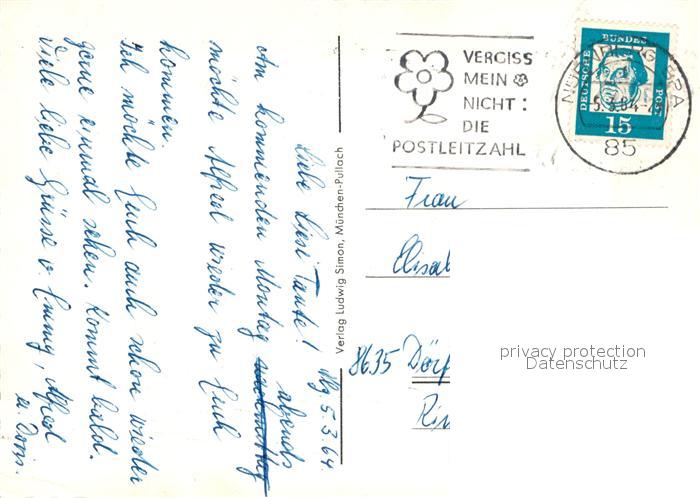 Nbg. 5.3.64.
Liebe Liesi Tante!
Am kommenden Montag abends
möchte Alfred wieder zu Euch
kommen.
Ich möchte Euch auch schon wieder
gerne einmal sehen. Kommt bald.
Viele liebe Grüsse v. Emmy, Alfred
u. Doris.
Verlag Ludwig Simon, München-Pullach
VERGISS
MEIN
NICHT:
DIE
POSTLEITZAHL
DEUTSCHE BUNDESPOST
15
5.3.64
85
Frau
Elisab
8635 Dörf
privacy protection
Datenschutz